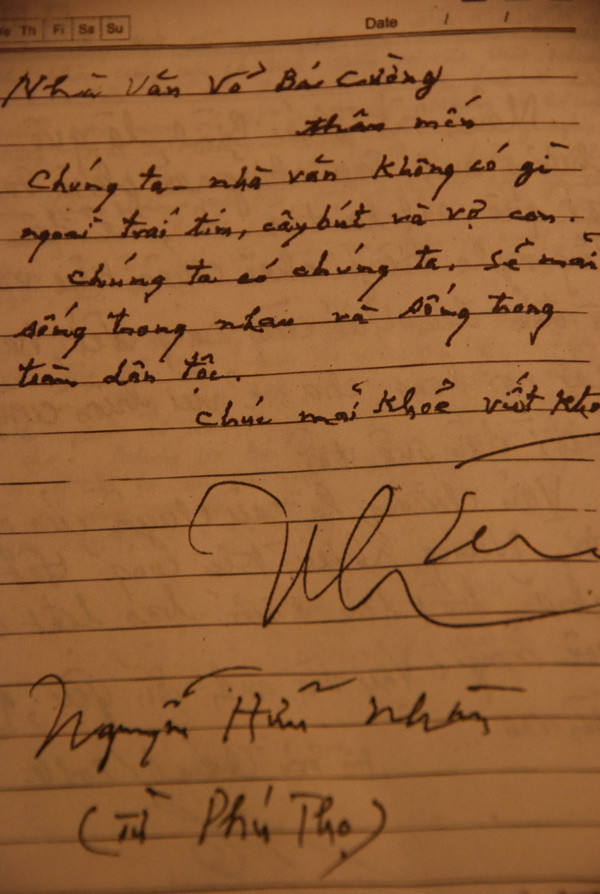 Th Fri Sa Su Date / /
Nhà văn Võ Bá Cường
thân mến
Chúng ta - nhà văn không có gì
ngoài trái tim, cây bút và vợ con.
Chúng ta có chúng ta. Sẽ mãi
sống trong nhau và sống trong
dân tộc.
Chúc mãi khoẻ viết kho
Nguyễn Hữu Nhàn
(Từ Phú Thọ)